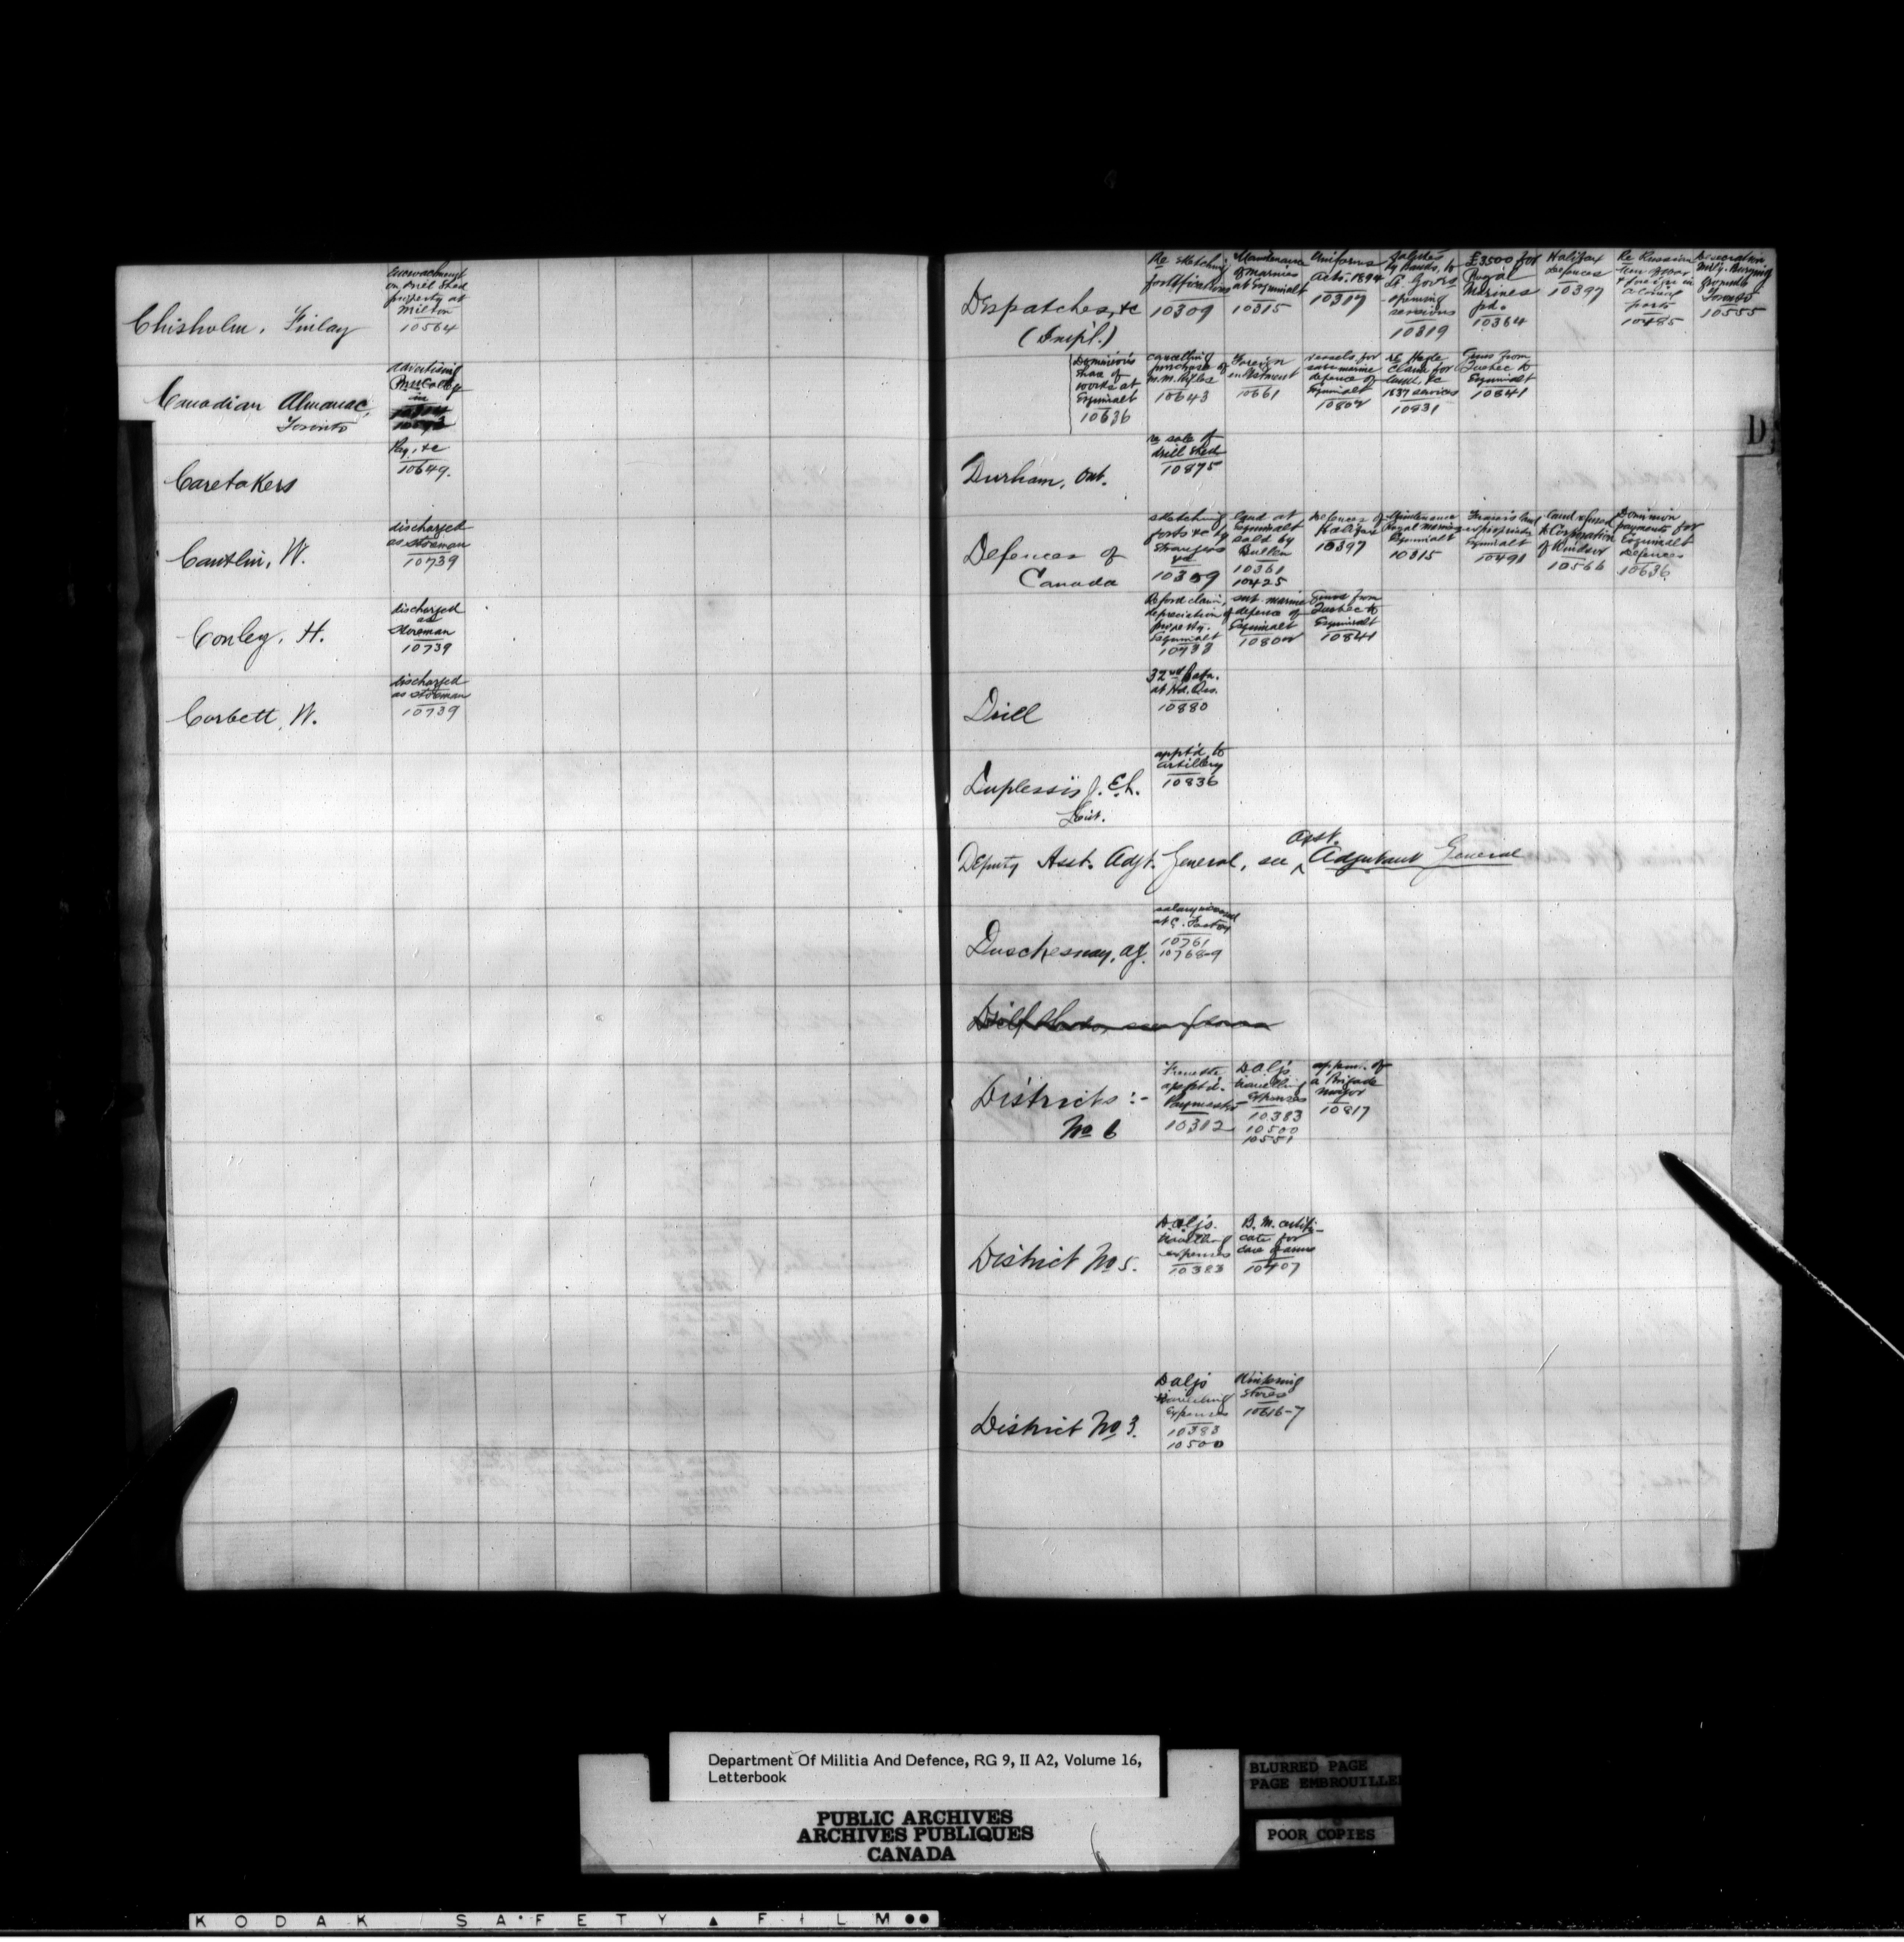 Chisholm, Finlay
encroachment
on Drill Shed
property at
Milton
10564
Canadian Almanac,
Toronto
advertising
in
Caretakers
Pay, &c
10649.
Cantlin, W.
discharged
as storeman
10739
Conley, H.
discharged
as
storeman
10739
Corbett, W.
discharged
as storeman
10739
D
Despatches, &c
(Impl.)
Re sketching
fortifications
10309
Maintenance
of Marines
at Esquimalt
10315
Uniforms
Acts. 1894
10317
Salutes
by Bands, to
Lt. Govrs
opening
sessions
10319
£3500 for
Royal
Marines
pd.
10364
Halifax
defences
10397
Re Russian
in
colonial
ports
10485
Desecration
Mil'y. Burying
grounds
Toronto
10555
Dominion's
share of
works at
Esquimalt
10636
cancelling
purchase of
M.M. Rifles
10643
Foreign
enlistment
10661
vessels for
submarine
defence of
Esquimalt
10802
re Hagle
claim for
land, &c
1837 services
10831
Guns from
Quebec to
Esquimalt
10841
Durham, Ont.
re sale of
drill shed
10875
Defences of
Canada
sketching
forts &c by
Strangers
10309
land at
Esquimalt
sold by
Bullen
10361
10425
Defences of
Halifax
10397
Maintenance
Royal Marines
Esquimalt
10315
Esquimalt
10491
Land refused
to Corporation
of Windsor
10566
Dominion
payments for
Esquimalt
Defences
10636
claim,
depreciation of
property.
Esquimalt
10733
sub marine
defence of
Esquimalt
10802
Guns from
Quebec to
Esquimalt
10841
Drill
32nd Batn.
at Hd. Qrs.
10880
Duplessis J. E. L.
Lieut.
appt'd to
Artillery
10836
Deputy Asst. Adjt. General, see Asst. Adjutant General
Duschesnay, A.J.
salary increased
at C. Factory
10761
10768-9
Districts :-
No 6
appt'd.
Paymaster
10312
D.A.G's
travelling
expenses
10383
10500
10551
appmt. of
a Brigade
Major
10817
District No 5.
D.A.G's.
travelling
expenses
10383
B. M. certifi-
cate for
care of arms
10407
District No 3.
D.A.G's
travelling
Expenses
10383
10500
Kingston
Stores
10616-7
Department Of Militia And Defence, RG 9, II A2, Volume 16,
Letterbook
PUBLIC ARCHIVES
ARCHIVES PUBLIQUES
CANADA
BLURRED PAGE
PAGE EMBROUILLE
POOR COPIES
KODAK SAFETY FILM